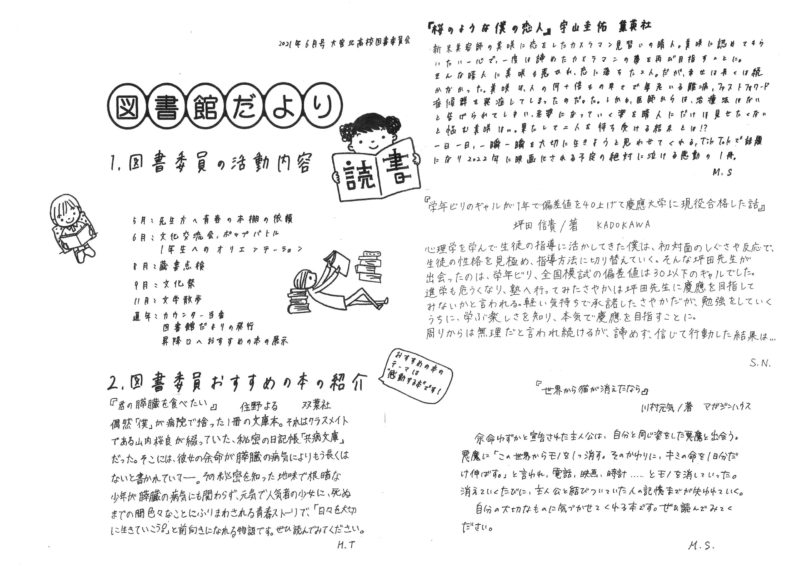 2021年6月号 大宮北高校図書委員会
図書館だより
読書
1.図書委員の活動内容
5月:先生方へ青春の本棚の依頼
6月:文化交流会、ポップバトル
1年生へのオリエンテーション
8月:蔵書点検
9月:文化祭
11月:文学散歩
通年:カウンター当番
図書館だよりの発行
昇降口へおすすめの本の展示
2.図書委員おすすめの本の紹介
おすすめの本の
テーマは
"感動する本"です!
『君の膵臓を食べたい』 住野よる 双葉社
偶然「僕」が病院で拾った1冊の文庫本。それはクラスメイト
である山内桜良が綴っていた、秘密の日記帳「共病文庫」
だった。そこには、彼女の余命が膵臓の病気によりもう長くは
ないと書かれていて──。その秘密を知った地味で根暗な
少年が膵臓の病気にも関わらず、元気で人気者の少女に、死ぬ
までの間色々なことにふりまわされる青春ストーリーで、「日々を大切
に生きていこう」と前向きになれる物語です。ぜひ読んでみてください。
H.T
『桜のような僕の恋人』 宇山佳佑 集英社
新米美容師の美咲に恋をしたカメラマン見習いの晴人。美咲に認めてもら
いたい一心で、一度は諦めたカメラマンの夢を再び目指すことに。
そんな晴人に美咲も惹かれ、恋に落ちた2人。だが、幸せは長くは続
かなかった。美咲は、人の何十倍もの早さで年老いる難病、ファストフォワード
症候群を発症してしまったのだった。しかも、医師からは、治療法はない
と告げられてしまい、老婆になっていく姿を晴人にだけは見せたくない
と悩む美咲は…。果たして二人を待ち受ける結末とは!?
一日一日、一瞬一瞬を大切に生きようと思わせてくれる、TikTokで話題
になり2022年に映画化される予定の絶対に泣ける感動の1冊。
M.S
『学年ビリのギャルが1年で偏差値を40上げて慶應大学に現役合格した話』
坪田信貴/著 KADOKAWA
心理学を学んで生徒の指導に活かしてきた僕は、初対面のしぐさや反応で、
生徒の性格を見極め、指導方法に切り替えていく。そんな坪田先生が
出会ったのは、学年ビリ、全国模試の偏差値は30以下のギャルでした。
進学も危うくなり、塾へ行ってみたさやかは坪田先生に慶應を目指して
みないかと言われる。軽い気持ちで承諾したさやかだが、勉強をしていく
うちに、学ぶ楽しさを知り、本気で慶應を目指すことに。
周りからは無理だと言われ続けるが、諦めず、信じて行動した結果は…
S.N.
『世界から猫が消えたなら』
川村元気/著 マガジンハウス
余命わずかと宣告された主人公は、自分と同じ姿をした悪魔と出会う。
悪魔に「この世界からモノを1つ消す。そのかわりに、キミの命を1日分だ
け伸ばす。」と言われ、電話、映画、時計……とモノを消していった。
消えていくたびに、主人公と結びついていた人の記憶までが失われていく。
自分の大切なものに気づかせてくれる本です。ぜひ読んでみてく
ださい。
M.S.